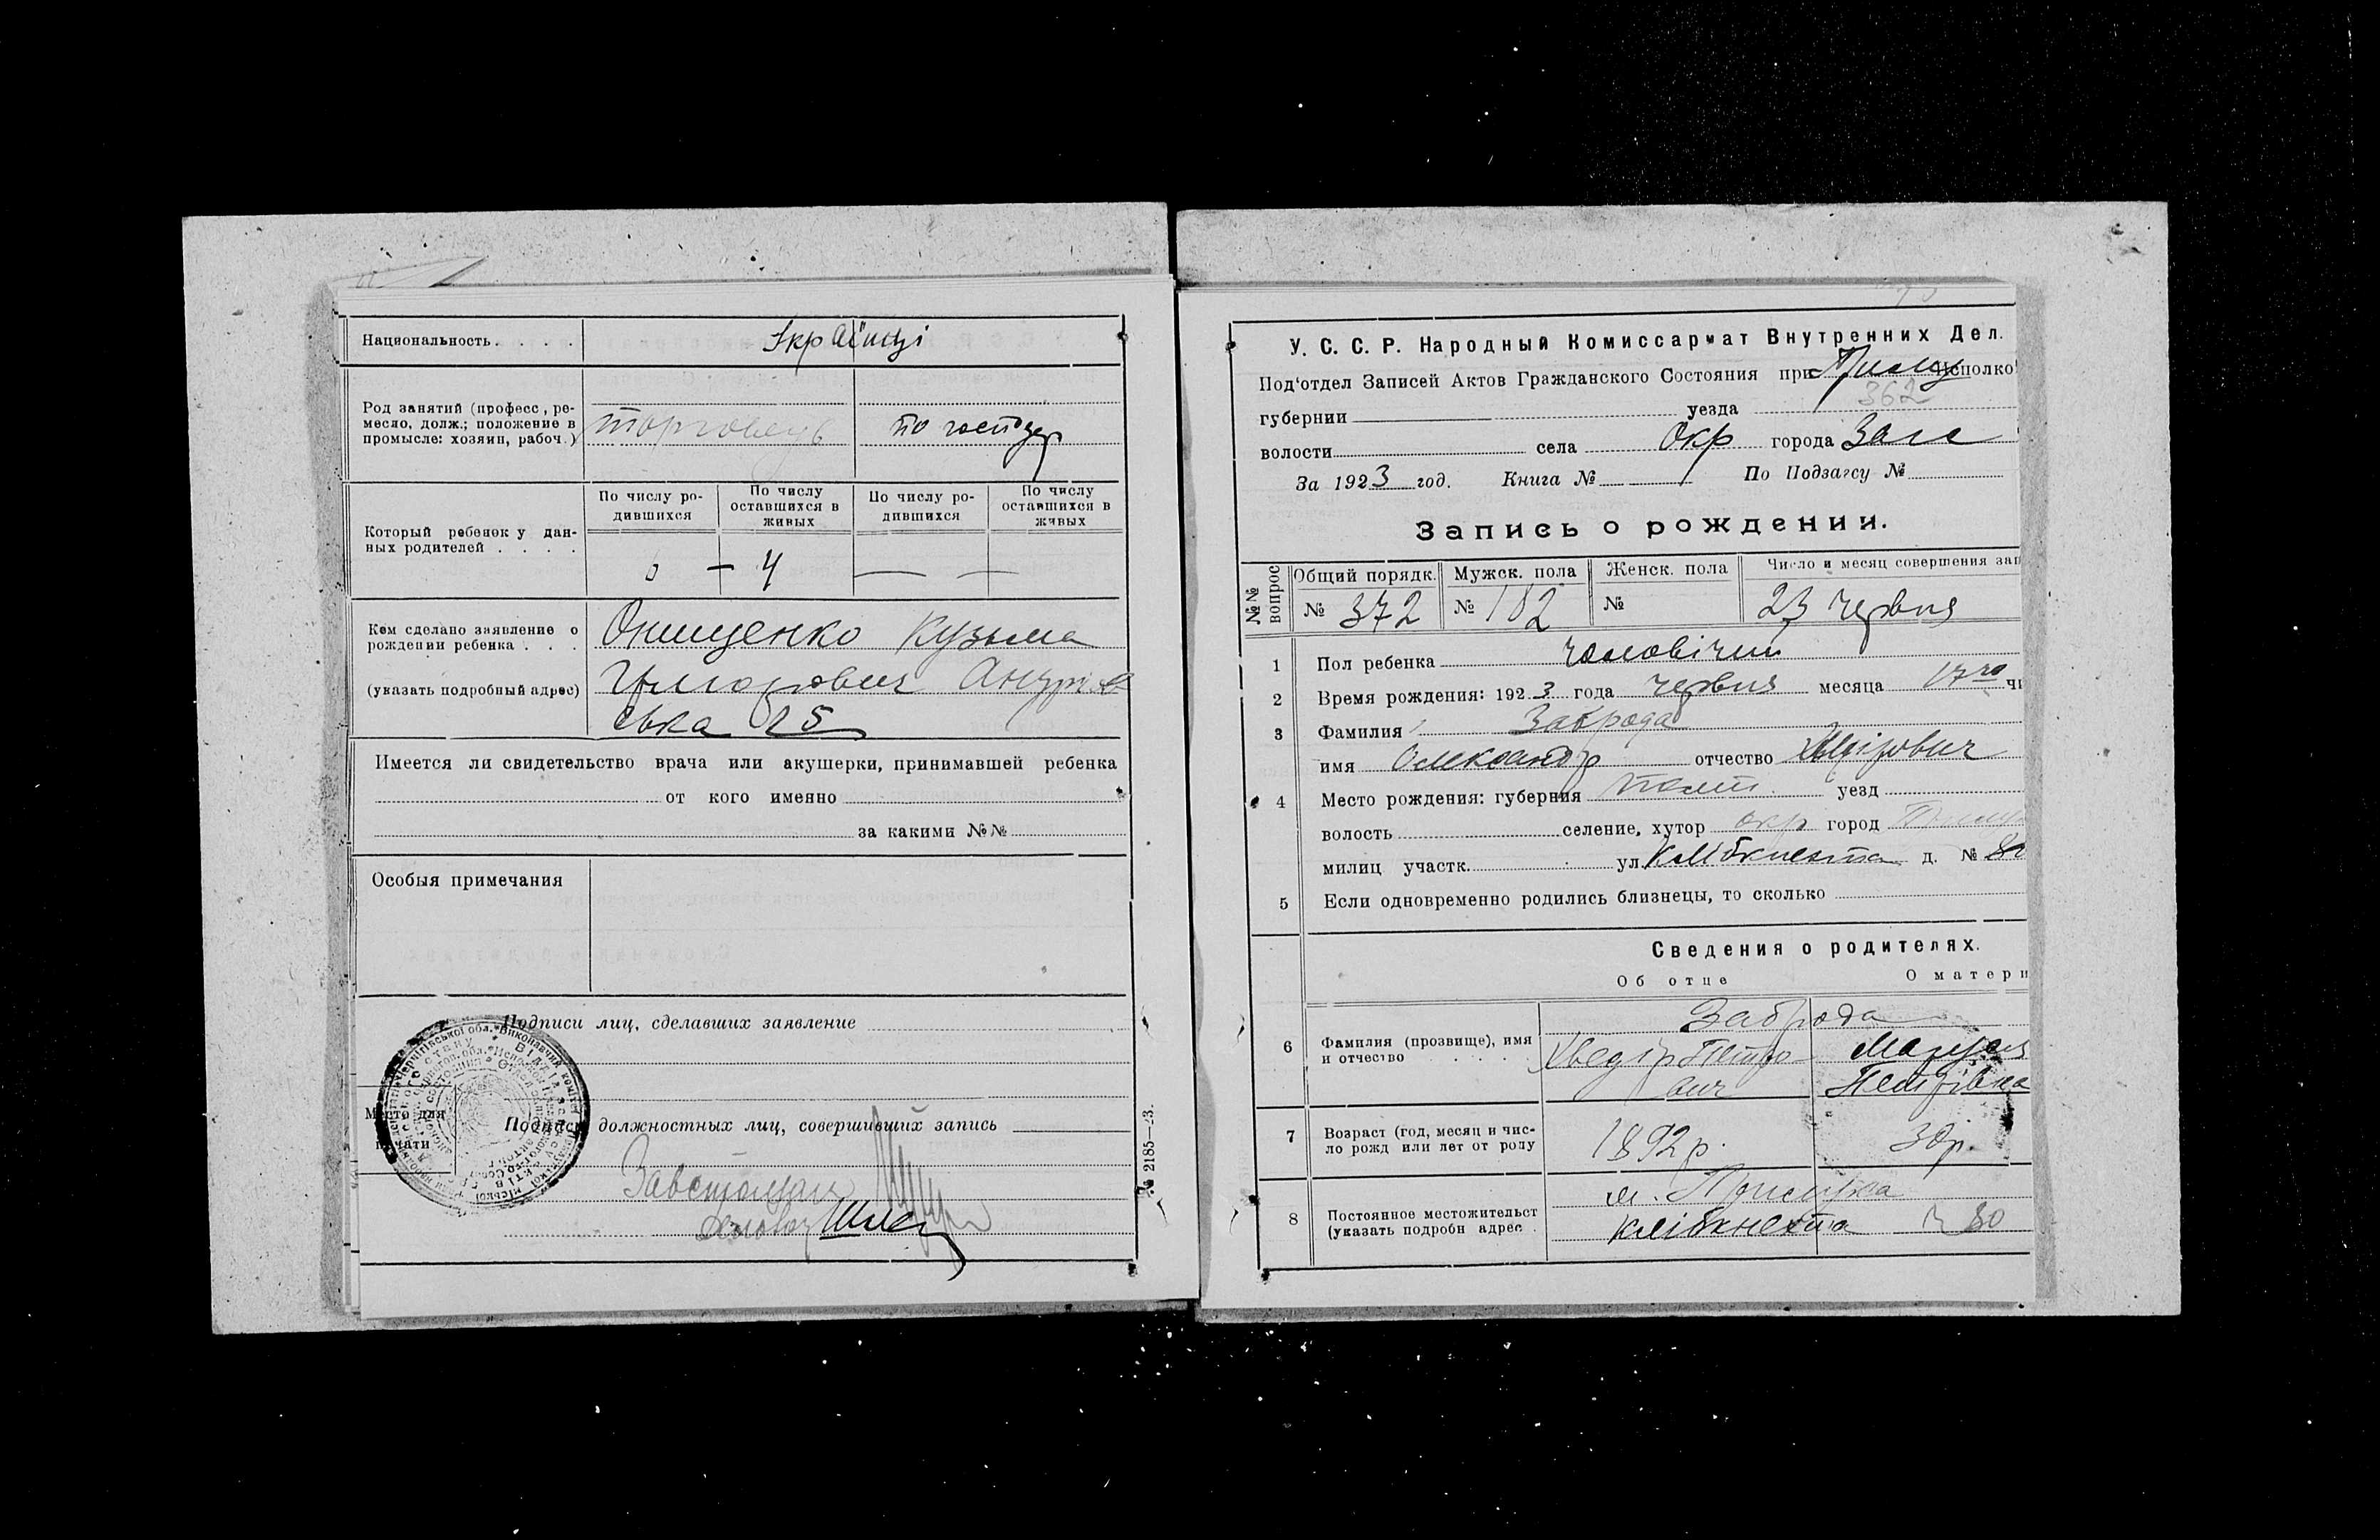 Национальность. . . . .
Українці
Род занятий (професс, ре-
месло, долж.; положение в
промысле: хозяин, рабоч.)
торговець
по господар
Который ребенок у дан-
ных родителей . . . .
По числу ро-
дившихся
По числу
оставшихся в
живых
По числу ро-
дившихся
По числу
оставшихся в
живых
— 4 — —
Кем сделано заявление о
рождении ребенка . . .
(указать подробный адрес)
Онищенко Кузьма
Григорович Андріїв
ська 25
Имеется ли свидетельство врача или акушерки, принимавшей ребенка
от кого именно
за какими №№
Особыя примечания
Подписи лиц, сделавших заявление
Место для
печати
Подписи должностных лиц, совершивших запись
Завстолом
Діловод
№ 2185—23.
У. С. С. Р. Народный Комиссариат Внутренних Дел.
Под'отдел Записей Актов Гражданского Состояния при Прилуц Исполко
362
губернии уезда
волости села Окр города Загс
За 1923 год. Книга № По Подзагсу №
Запись о рождении.
№№ вопрос
Общий порядк.
№ 372
Мужск. пола
№ 182
Женск. пола
№
Число и месяц совершения зап
23 червня
1 Пол ребенка чоловічий
2 Время рождения: 1923 года червня месяца 17го чи
3 Фамилия Заброда
имя Олександр отчество Хведірович
4 Место рождения: губерния Полт. уезд
волость селение, хутор окр город Прилуц
милиц участк. ул.Клібкнехта д. № 80
5 Если одновременно родились близнецы, то сколько
Сведения о родителях.
Об отце О матери
6 Фамилия (прозвище), имя
и отчество . . . .
Заброда
Хведір Петро
вич
Маруся
Петрівна
7 Возраст (год, месяц и чис-
ло рожд или лет от роду
1892 р.
30 р.
8 Постоянное местожительст
(указать подробн адрес .
м. Прилука
Клібкнехта № 80